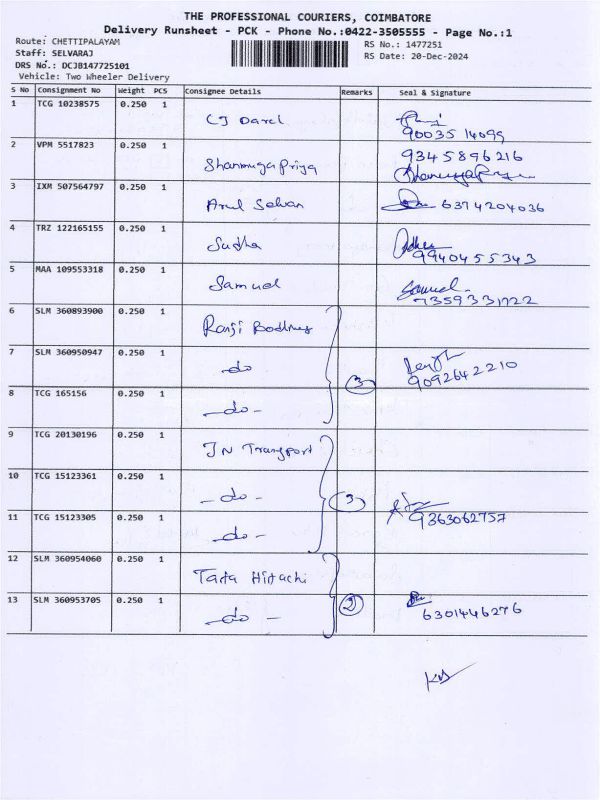 THE PROFESSIONAL COURIERS, COIMBATORE
Delivery Runsheet - PCK - Phone No.:0422-3505555 - Page No.:1
Route: CHETTIPALAYAM
RS No.: 1477251
Staff: SELVARAJ
RS Date: 20-Dec-2024
DRS No.: DCJB147725101
Vehicle: Two Wheeler Delivery
S No Consignment No Weight PCS Consignee Details Remarks Seal & Signature
1 TCG 10238575 0.250 1 CJ Darcl 90035 14099
2 VPM 5517823 0.250 1 ShanmugaPriya 9345896216
3 IXM 507564797 0.250 1 Arul Selvan 6374204036
4 TRZ 122165155 0.250 1 Sudha 9940455343
5 MAA 109553318 0.250 1 Samuel Samuel 7359331722
6 SLM 360893900 0.250 1 Ranji
7 SLM 360950947 0.250 1 -do 3 9092642210
8 TCG 165156 0.250 1 -do-
9 TCG 20130196 0.250 1 JN Transport
10 TCG 15123361 0.250 1 -do- 3
11 TCG 15123305 0.250 1 -do- 9363062757
12 SLM 360954060 0.250 1 Tata Hitachi
13 SLM 360953705 0.250 1 -do- 2 6301446276